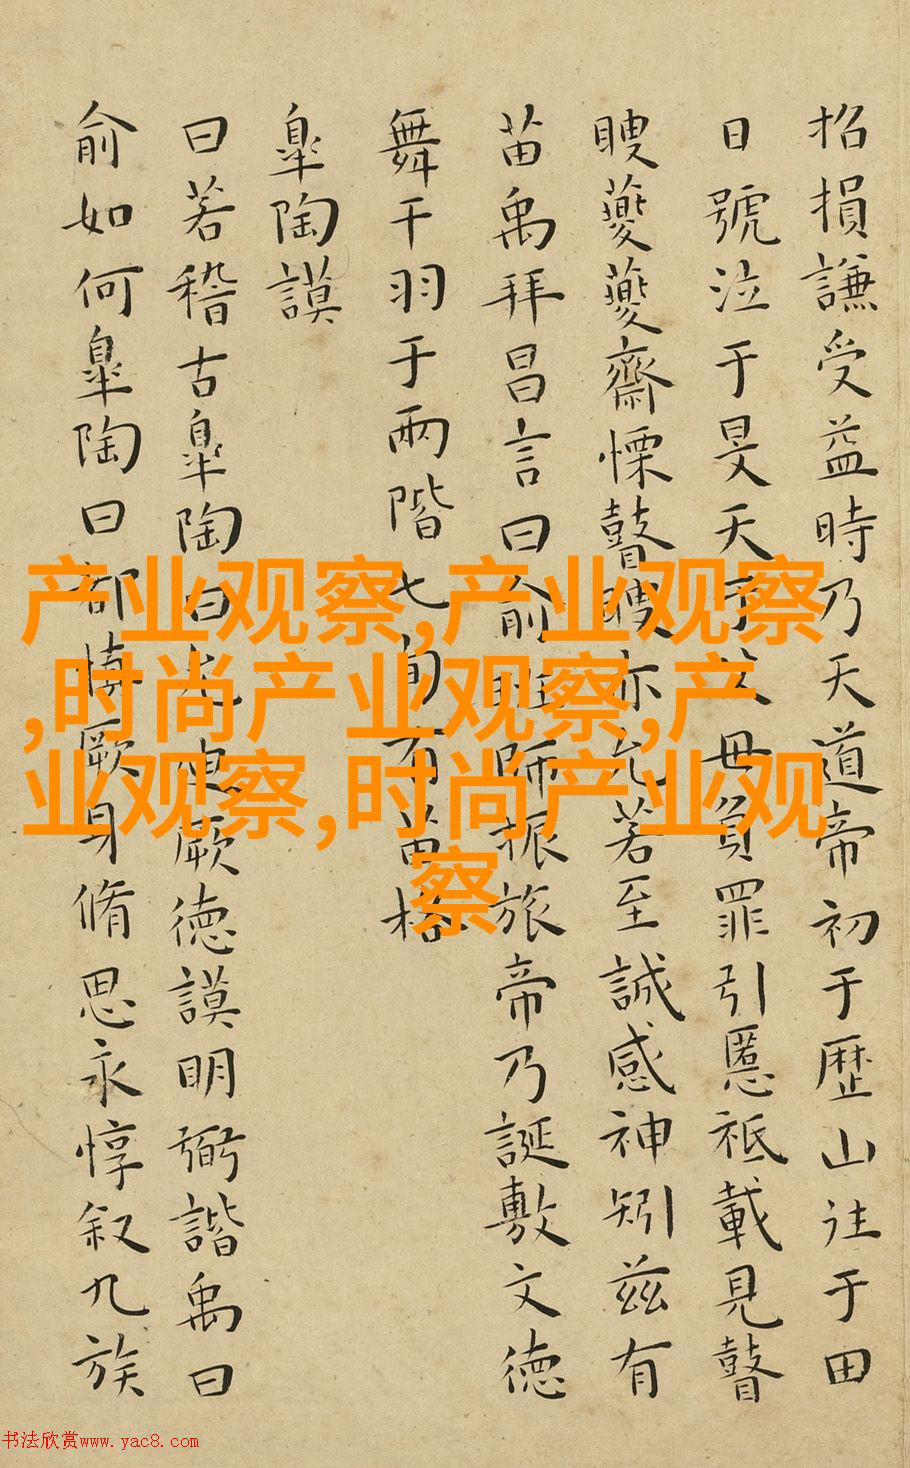 招損謙受益時乃天道帝初于歴山往于田
日號泣于旻天于父母負罪引慝祗載見瞽
瞍夔夔齋慄瞽瞍亦允若至誠感神矧兹有
苗禹拜昌言曰俞班師振旅帝乃誕敷文德
舞干羽于兩階七旬有苗格
皐陶謨
曰若稽古皐陶曰允迪厥德謨明弼諧禹曰
俞如何皐陶曰都慎厥身脩思永惇叙九族
产业观察,产业观察
,时尚产业观察,产
业观察,时尚产业观
察
书法欣赏www.yac8.com